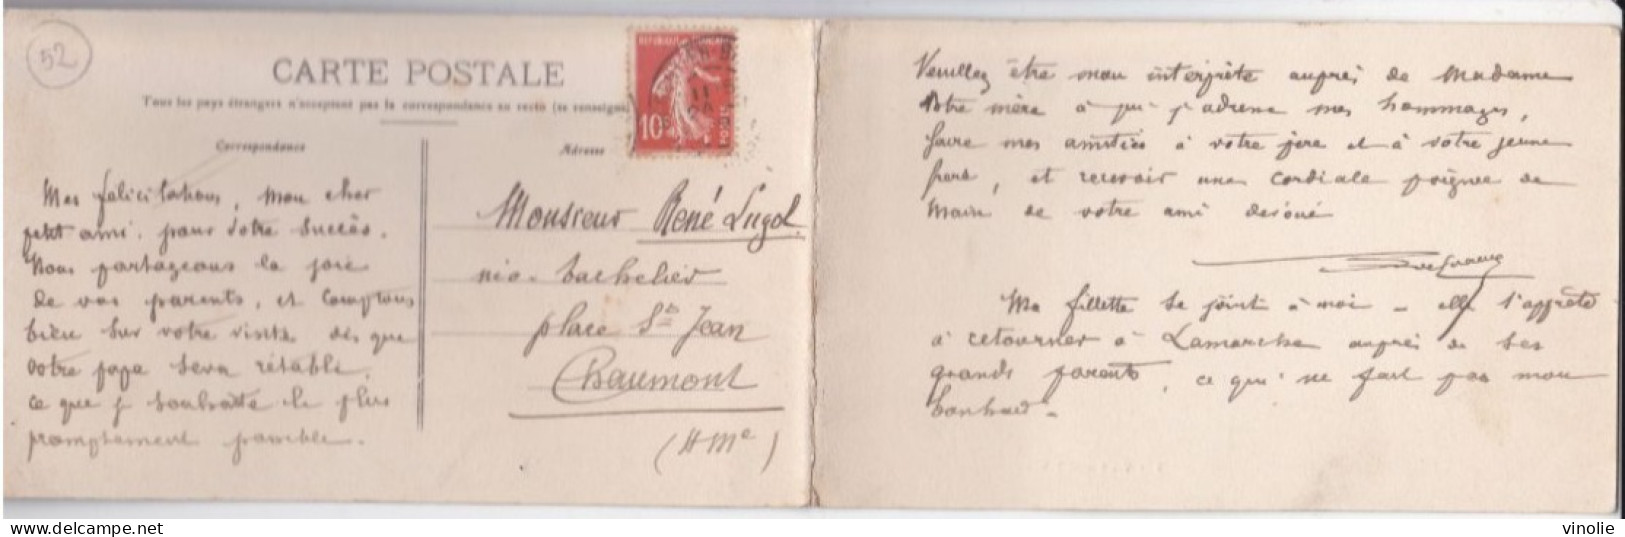 52
CARTE POSTALE
Tous les pays étrangers n'acceptent pas la correspondance au recto (se renseigner
REPUBLIQUE FRANÇAISE
10c
POSTES
Correspondance
Adresse
Mes felicitations, mon cher
petit ami, pour votre succès.
Nous partageons la joie
de vos parents, et comptons
bien sur votre visite dès que
votre papa sera rétabli,
ce que je souhaite le plus
promptement possible.
Monsieur René Lugol
néo-bachelier
place St Jean
Chaumont
(Hte Mne)
Veuillez être mon interprète auprès de Madame
votre mère à qui j'adresse mes hommages,
faire mes amitiés à votre père et à votre jeune
frère, et recevoir une cordiale poignée de
main de votre ami dévoué
Ma fillette se joint à moi - elle s'apprête
à retourner à Lamarche auprès de ses
grands parents, ce qui ne fait pas mon
bonheur -
delcampe.net
vinolie